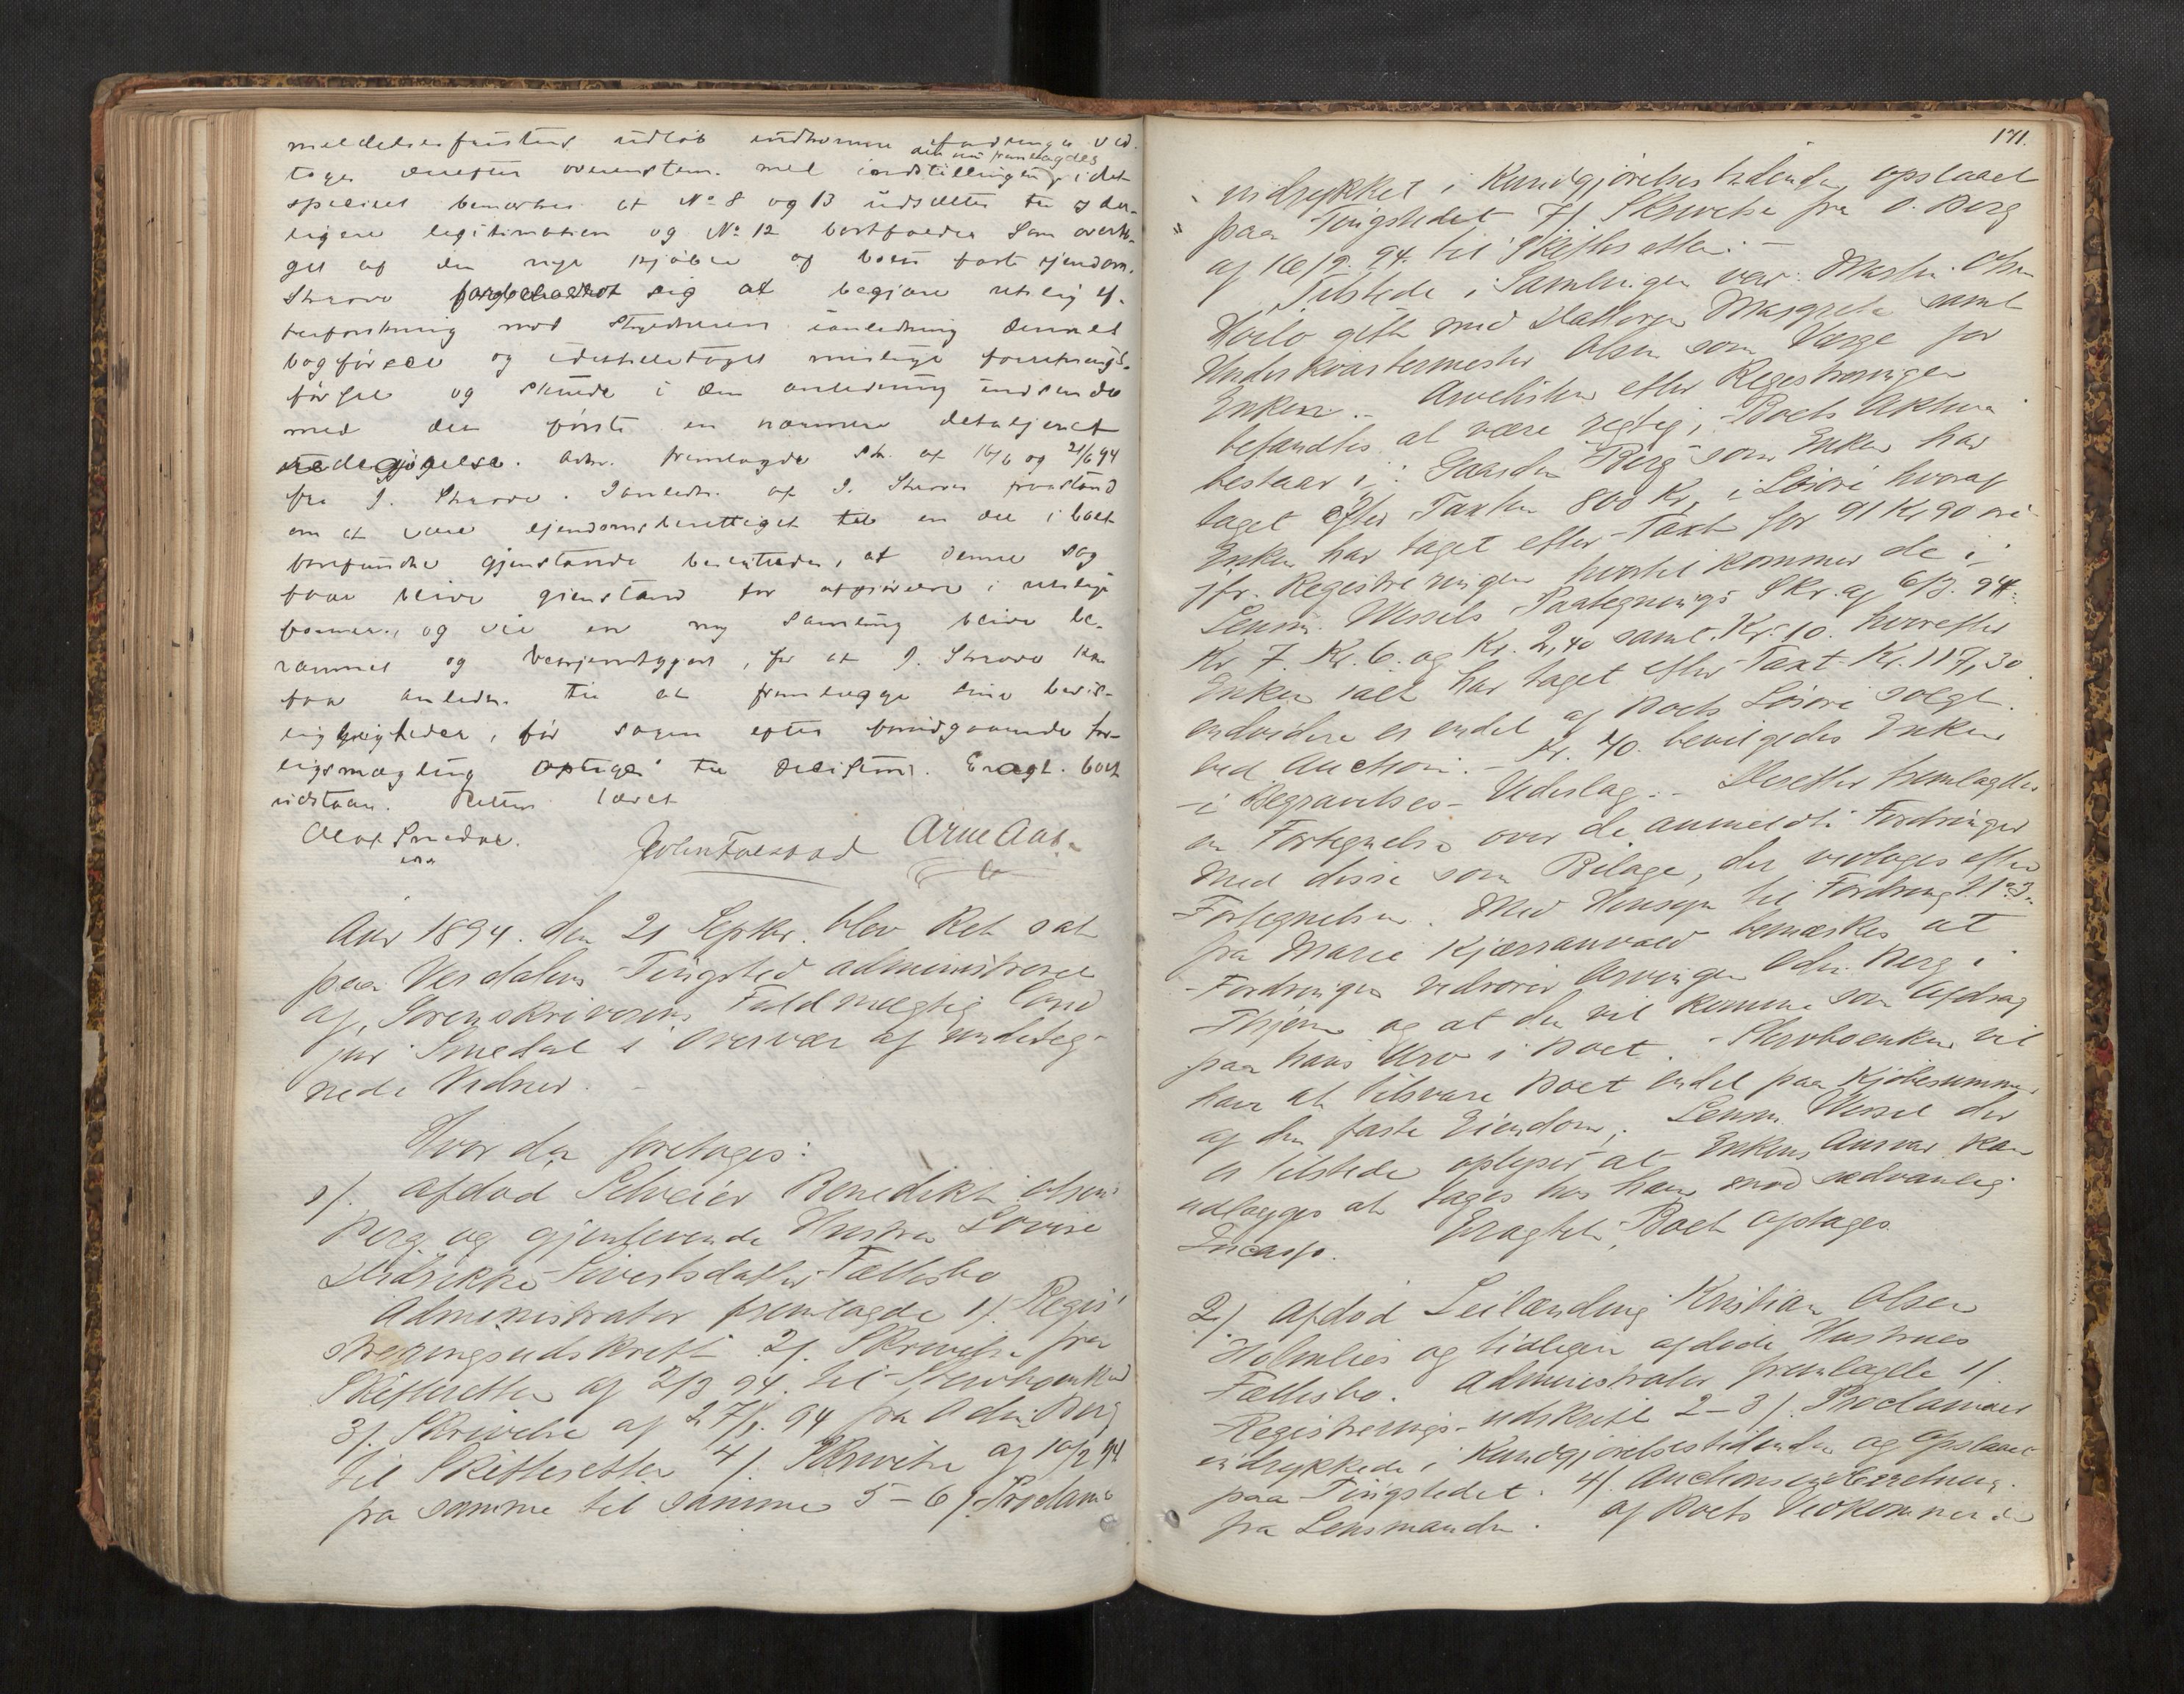 meldelsesfristens udløb indkomne fordringer ved-
den nu fremlagdes
toges derefter overenstem. med indstillingen, idet
specielt bemærkes at No 8 og 13 udsættes til yder-
ligere legitimation og No 12 bortfalder som overta-
get af den nye kjøber af boets faste eiendom.
forbeholdt sig at begjære retslig ef-
terforskning mod i anledning dennes
bogførsel og forretnings-
førsel og skulde i den anledning indsende
med det første en nærmere detaljeret
redegjørelse. Adm. fremlagde Skr. af 16/6 og 21/6 94
fra J. . I anledn. af J. paastand
om at være eiendomsberettiget til en del i boet
forefundne gjenstande besluttedes, at denne sag
faar blive gjenstand for afgjørelse i retslige
former, og vil en ny samling blive be-
rammet og bekjendtgjort, for at J. kan
faa anledn. til at fremlægge sine bevis-
ligheder, før sagen efter forudgaaende for-
ligsmægling optages til decision. Eragt. boet
udstaar. Retten hævet
Olaf Smedal.
John Arne
Aar 1894. den 21 Septbr. blev Ret sat
paa Verdalens Tingsted administreret
af Sorenskriverens Fuldmægtig Cand
jur Smedal i Overvær af undeteg-
nede Vidner. -
Hvor da foretoges:
1/. Afdød Selveier Benedikt Olsen
Berg og gjenlevende Hustru Lovise
Sivertsdatter Fællesbo
Administrator fremlagde 1/. Regis-
treringsudskrift 2/. Skrivelse fra
Skifteretten af 2/3 94. til Stervboenken
3/. Skrivelse af 27/1 94 fra Odin Berg
til Skifteretten 4/. Skrivelse af 10/2 94
fra samme til samme 5-6/. Proclama
171.
indrykket i Kundgjørelsestidende, opslaaet
paa Tingstedet 7/. Skrivelse fra O. Berg
af 16/9. 94. til Skifteretten. -
Tilstede i Samlingen var: Martin Olsen
gift med Datteren Margrete samt
Underkvartermester Olsen som Værge for
Enken. - Arvelisten efter Registreringen
befandtes at være rigtig, Boets Aktiva
bestaar i: Gaarden Berg som Enken har
taget efter Taxten 800 Kr, i Løsøre hvoraf
Enken har taget efter Taxt for 91 Kr 90 øre
jfr. Registreringen hvortil kommer de i
Lensm. Wessels Paategnings Skr. af 6/3. 94:
Kr. 7. Kr. 6. og Kr. 2,40 samt Kr. 10. hvorefter
Enken ialt har taget efter Taxt Kr. 117,30.
endvidere er endel af Boets Løsøre solgt
ved Auction. - Kr. 40. bevilgedes Enken
i Begravelses-Vederlag. - Derefter fremlagdes
en Fortegnelse over de anmeldte Fordringer
med disse som Bilage, der vedtoges efter
Fortegnelsen. Med Hensyn til Fordring
fra Marie bemærkes at
Fordringen vedrører Arvingen Odin Berg i
og at den vil komme som Afdrag
paa hans Arv i Boet. - Stervboenken vil
have at tilsvare Boet endel paa Kjøbesummen
af den faste Eiendom; Lensm. Wessel der
er tilstede oplyser at Enkens Ansvar kan
udlægges at tages hos ham mod sædvanlig
Incasso. Eragtet; Boet optages
2/. Afdød Leilænding Kristian Olsen
Holmlies og tidligere afdøde Hustrues
Fællesbo. Administrator fremlagde 1/.
Registrerings-udskrift 2-3/. Proclamaer
indrykkede i Kundgjørelsestidende og opslaaet
paa Tingstedet. 4/. Auctions
fra Lensmanden. af Boets Vedkommende